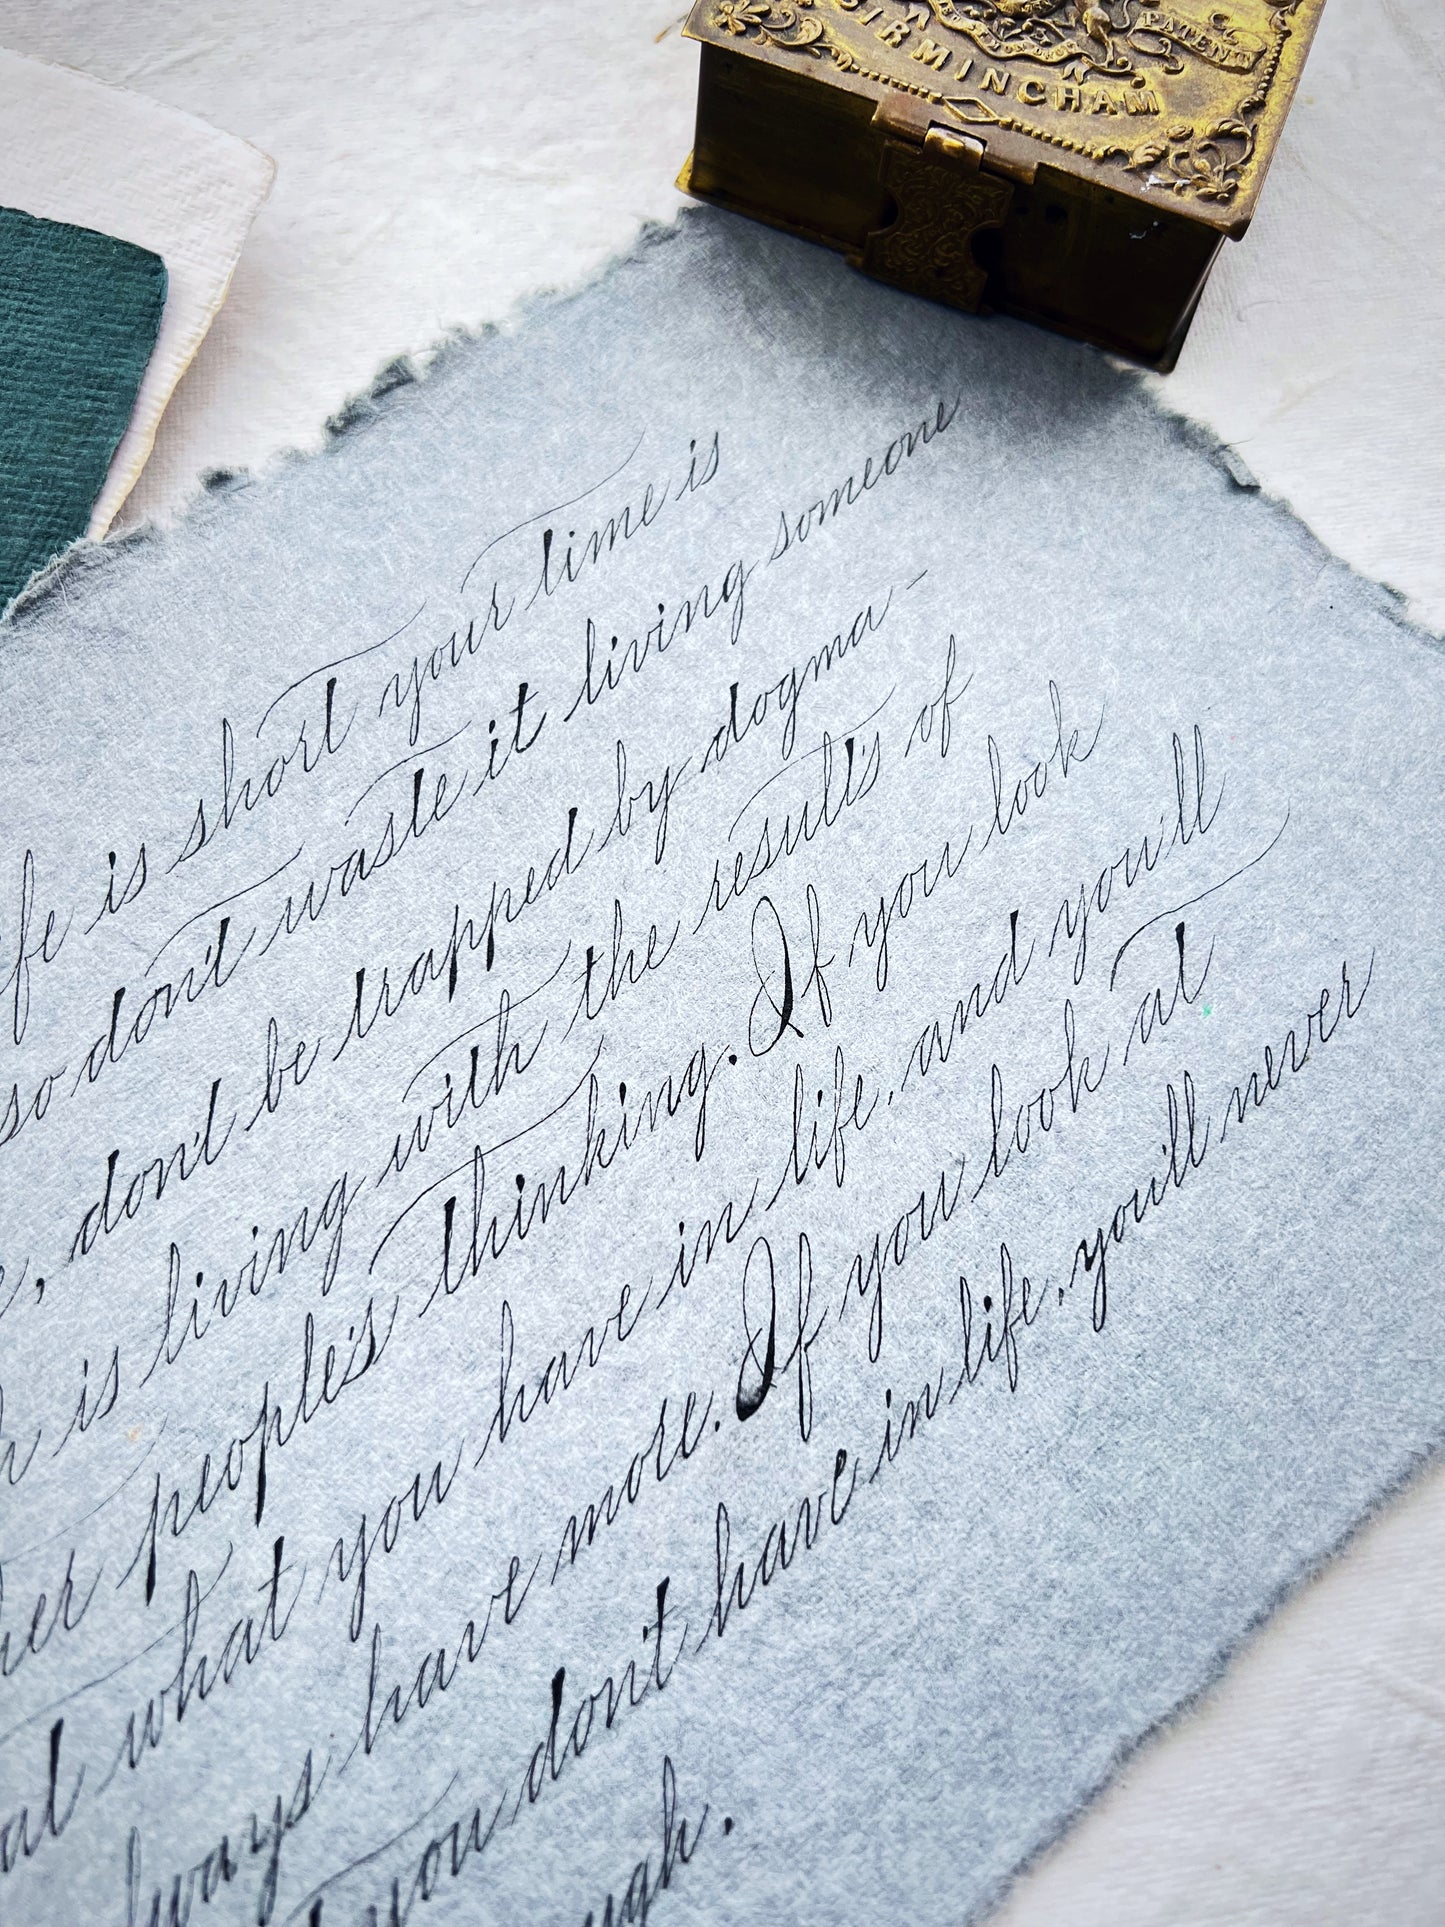 PATENT
BIRMINGHAM
fe is short your time is
so don't waste it living someone
e, don't be trapped by dogma -
h is living with the results of
her people's thinking. If you look
at what you have in life, and you'll
lways have more. If you look at
t you don't have in life, you'll never
ugh.